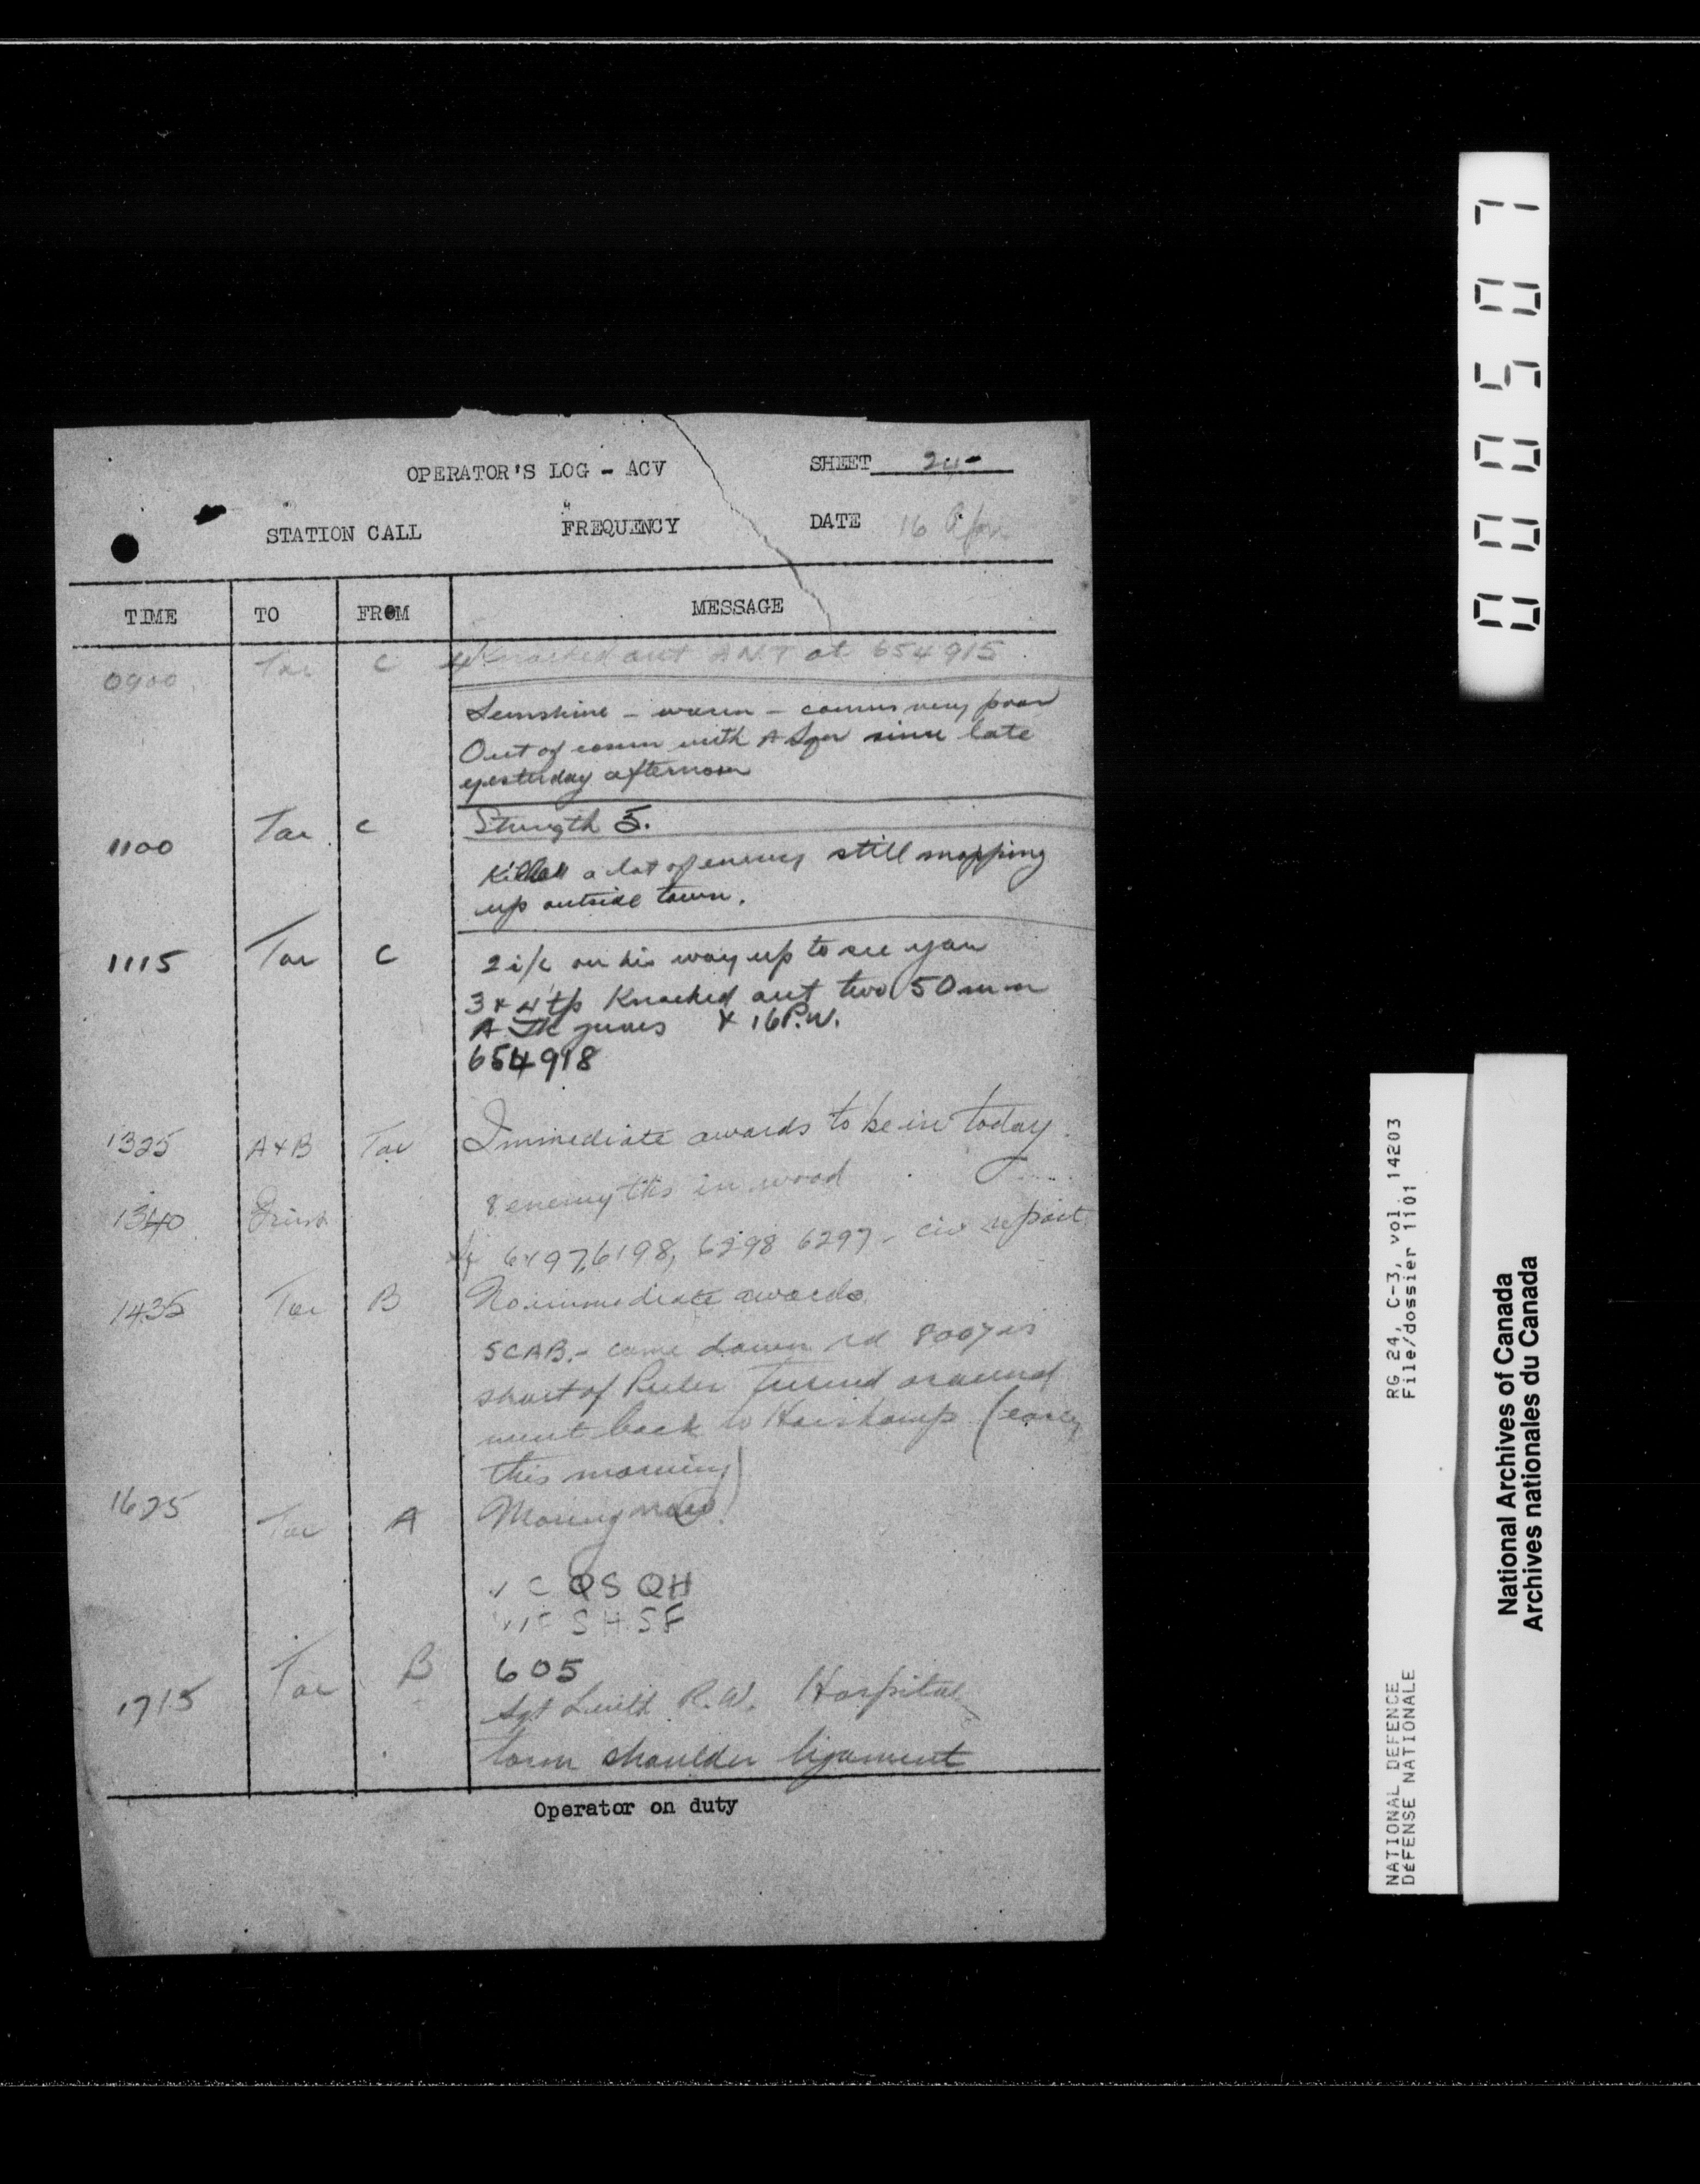 OPERATOR'S LOG - ACV SHEET
STATION CALL FREQUENCY DATE 16 Apr
TIME TO FROM MESSAGE
0900 Tac C Knocked out ANT at 654915
Sunshine - warm - comns very poor
Out of comm with A Sqn since late
yesterday afternoon
1100 Tac C Strength 5.
Killed a lot of enemy still mopping
up outside town.
1115 Tac C 2 i/c on his way up to see you
3 & 4 tp Knocked out two 50 mm
A Tk guns & 16 P.W.
654918
1325 A & B Tac Immediate awards to be in today
1340 8 enemy tks in wood
6197, 6198, 6298 6297 - civ report
1435 Tac B No immediate awards
SCAB. - came down rd 800 yds
short of Turned around
went back to Harskamp (early
this morning)
1625 Tac A Moving now
C QS QH
SH SF
1715 Tac B 605
Sgt R.W. Hospital
torn shoulder ligament
Operator on duty
0000507
RG 24, C-3, vol. 14203
File/dossier 1101
NATIONAL DEFENCE
DÉFENSE NATIONALE
National Archives of Canada
Archives nationales du Canada